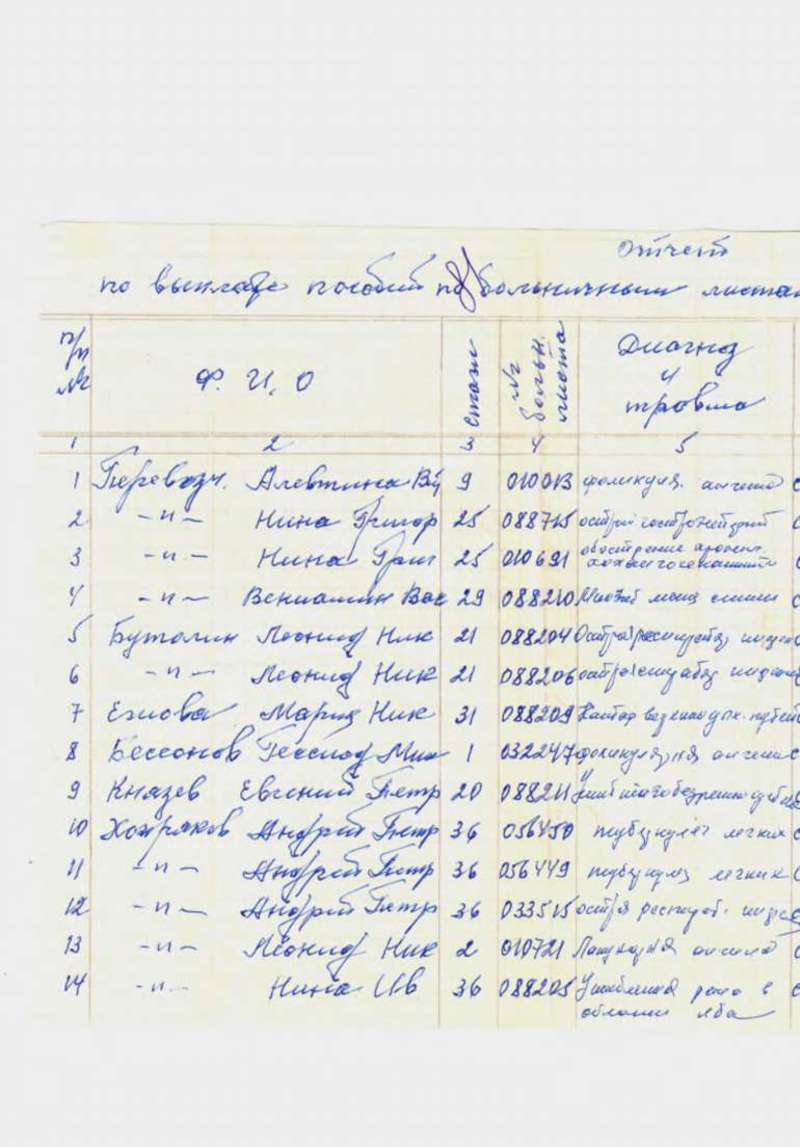 отчет
по выплате пособий по больничным листа
п/п № Ф. И. О стаж № больн. листа Диагноз и травма
1 2 3 4 5
1 Перевозч. Алевтина 9 010013 фоликуля. ангина
2 -"- Нина Григор 25 088715 острый
3 -"- Нина Григ 25 010691 обострение хронич.
4 -"- Вениамин Вас 29 088210 Миозит мышц спины
5 Буталин Леонид Ник 21 088204
6 -"- Леонид Ник 21 088206
7 Мария Ник 31 088209
8 Бессонов Мих 1 032247 ангина
9 Князев Евгений Петр 20 088211
10 Хохряков Андрей Петр 36 056450 туберкулез легких
11 -"- Андрей Петр 36 056449 туберкулез легких
12 -"- Андрей Петр 36 033515 остра респираб.
13 -"- Леонид Ник 2 010721 ангина
14 -"- Нина Ив 36 088205 Ушибленная рана в
области лба